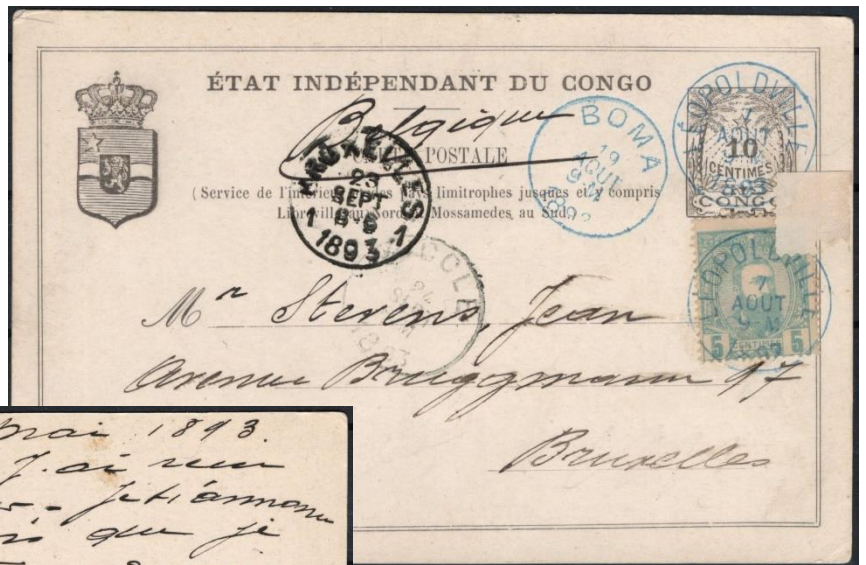 ÉTAT INDÉPENDANT DU CONGO
Belgique
CARTE POSTALE
(Service de l'intérieur et des pays limitrophes jusques et y compris
Libreville au Nord et Mossamedes au Sud.)
LÉOPOLDVILLE
7
AOUT
1893
10
CENTIMES
CONGO
BOMA
19
AOUT
9-M
BRUXELLES
23
SEPT
6-8
1 1893 1
UCCLE
24
1893
LÉOPOLDVILLE
7
AOUT
9-M
5 CENTIMES 5
Mr Stevens, Jean
Avenue Bruggmann 97
Bruxelles
mai 1893.
J'ai
que je